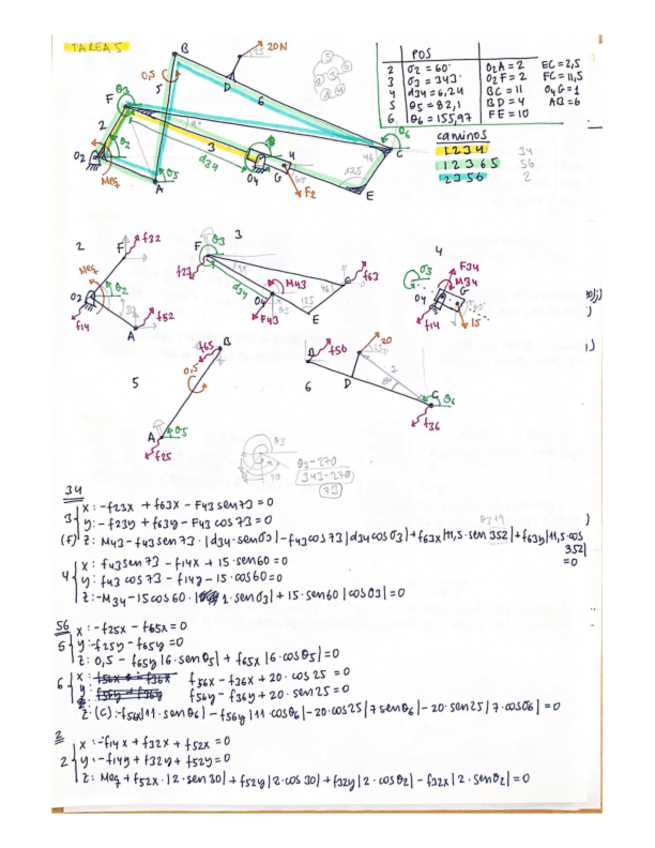 TAREA 5
B
20N
25
0,5
5
D
6
F
θ3
2
θ2
O2
Meq
A
θ5
3
d34
O4
G
4
60
F2
46
C
θ6
125
E
POS
2 θ2 = 60° O2A = 2 EC = 2,5
3 θ3 = 343° O2F = 2 FC = 11,5
4 d34 = 6,24 BC = 11 O4G = 1
5 θ5 = 82,1 BD = 4 AB = 6
6 θ6 = 155,97 FE = 10
caminos
1 2 3 4 34
1 2 3 6 5 56
2 3 5 6 2
2
F
f32
Meq
θ2
O2
f14
f52
A
3
F
θ3
f23
d34
M43
O4
F43
125
E
46
C
f63
4
θ3
F34
M34
G
O4
f14
15
5
f65
B
0,5
A
θ5
f25
6
B
f56
20
D
7
C
θ6
f36
θ3
θ3-270
343-270
73
34
3 x: -f23x + f63x - F43 sen73 = 0
y: -f23y + f63y - F43 cos73 = 0
(F) z: M43 - f43 sen73 · |d34 · senθ3| - f43 cos73 |d34 cosθ3| + f63x |11,5 · sen 352| + f63y |11,5 · cos 352| = 0
4 x: f43 sen73 - f14x + 15 · sen60 = 0
y: f43 cos73 - f14y - 15 · cos60 = 0
z: -M34 - 15 cos60 · |1 · senθ3| + 15 · sen60 |cosθ3| = 0
56
5 x: -f25x - f65x = 0
y: -f25y - f65y = 0
z: 0,5 - f65y |6 · senθ5| + f65x |6 · cosθ5| = 0
6 x: f56x - f36x + 20 · cos25 = 0
y: f56y - f36y + 20 · sen25 = 0
z: (C): -f56x |11 · senθ6| - f56y |11 cosθ6| - 20 · cos25 |7 senθ6| - 20 · sen25 |7 · cosθ6| = 0
2
2 x: -f14x + f32x + f52x = 0
y: -f14y + f32y + f52y = 0
z: Meq + f52x · |2 · sen30| + f52y |2 · cos30| + f32y |2 · cosθ2| - f32x |2 · senθ2| = 0